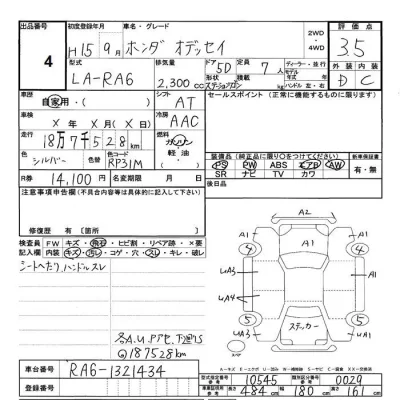 出品番号 初度登録年月 車名・グレード 2WD ・4WD 評価点
4 H15年9月 ホンダ オデッセイ 3.5
型式 排気量 ドア 5D 定員 7人 ディーラー・並行 外装 内装
LA-RA6 2,300cc 形状 ステーションワゴン モデル 年 ハンドル 左・右 D C
車歴 自家用・( ) シフト AT セールスポイント(正常に機能するものに限り)
車検 X年X月(X日) 冷房 AAC
走行 18万7千528km 燃料 ガソリン・軽油・
色 シルバー 色替 色コード RP31M
装備品(純正品に限り○をつけてください) 新車保証書
PS PW ABS エアB AW
SR ナビ TV カワ 有・無
R券 14,100円 名変期限 月 日 後日品
注意事項記入欄(不具合内容等は具体的に記入して下さい)
修復歴/有( )【箇所 】
検査員記入欄 FW キズ・飛石・ヒビ割・リペア跡・×要
内装 キズ・汚レ・コゲ・穴・スレ・キレ・破レ
シートへたり、ハンドルスレ
A2
A1 A1 A1
4 4
UA3 A3
UA4
5 5
ステッカー
A1 A1
スペア
各A.U
187528km
A=キズ E=エクボ U=凹み W=補修跡 S=サビ C=腐食 XX=交換済
車台番号 RA6-1321434 型式指定番号 参考 10545 類別区分番号 参考 0029
登録番号 車両寸法 参考 長さ 484cm 幅 180cm 高さ 161cm